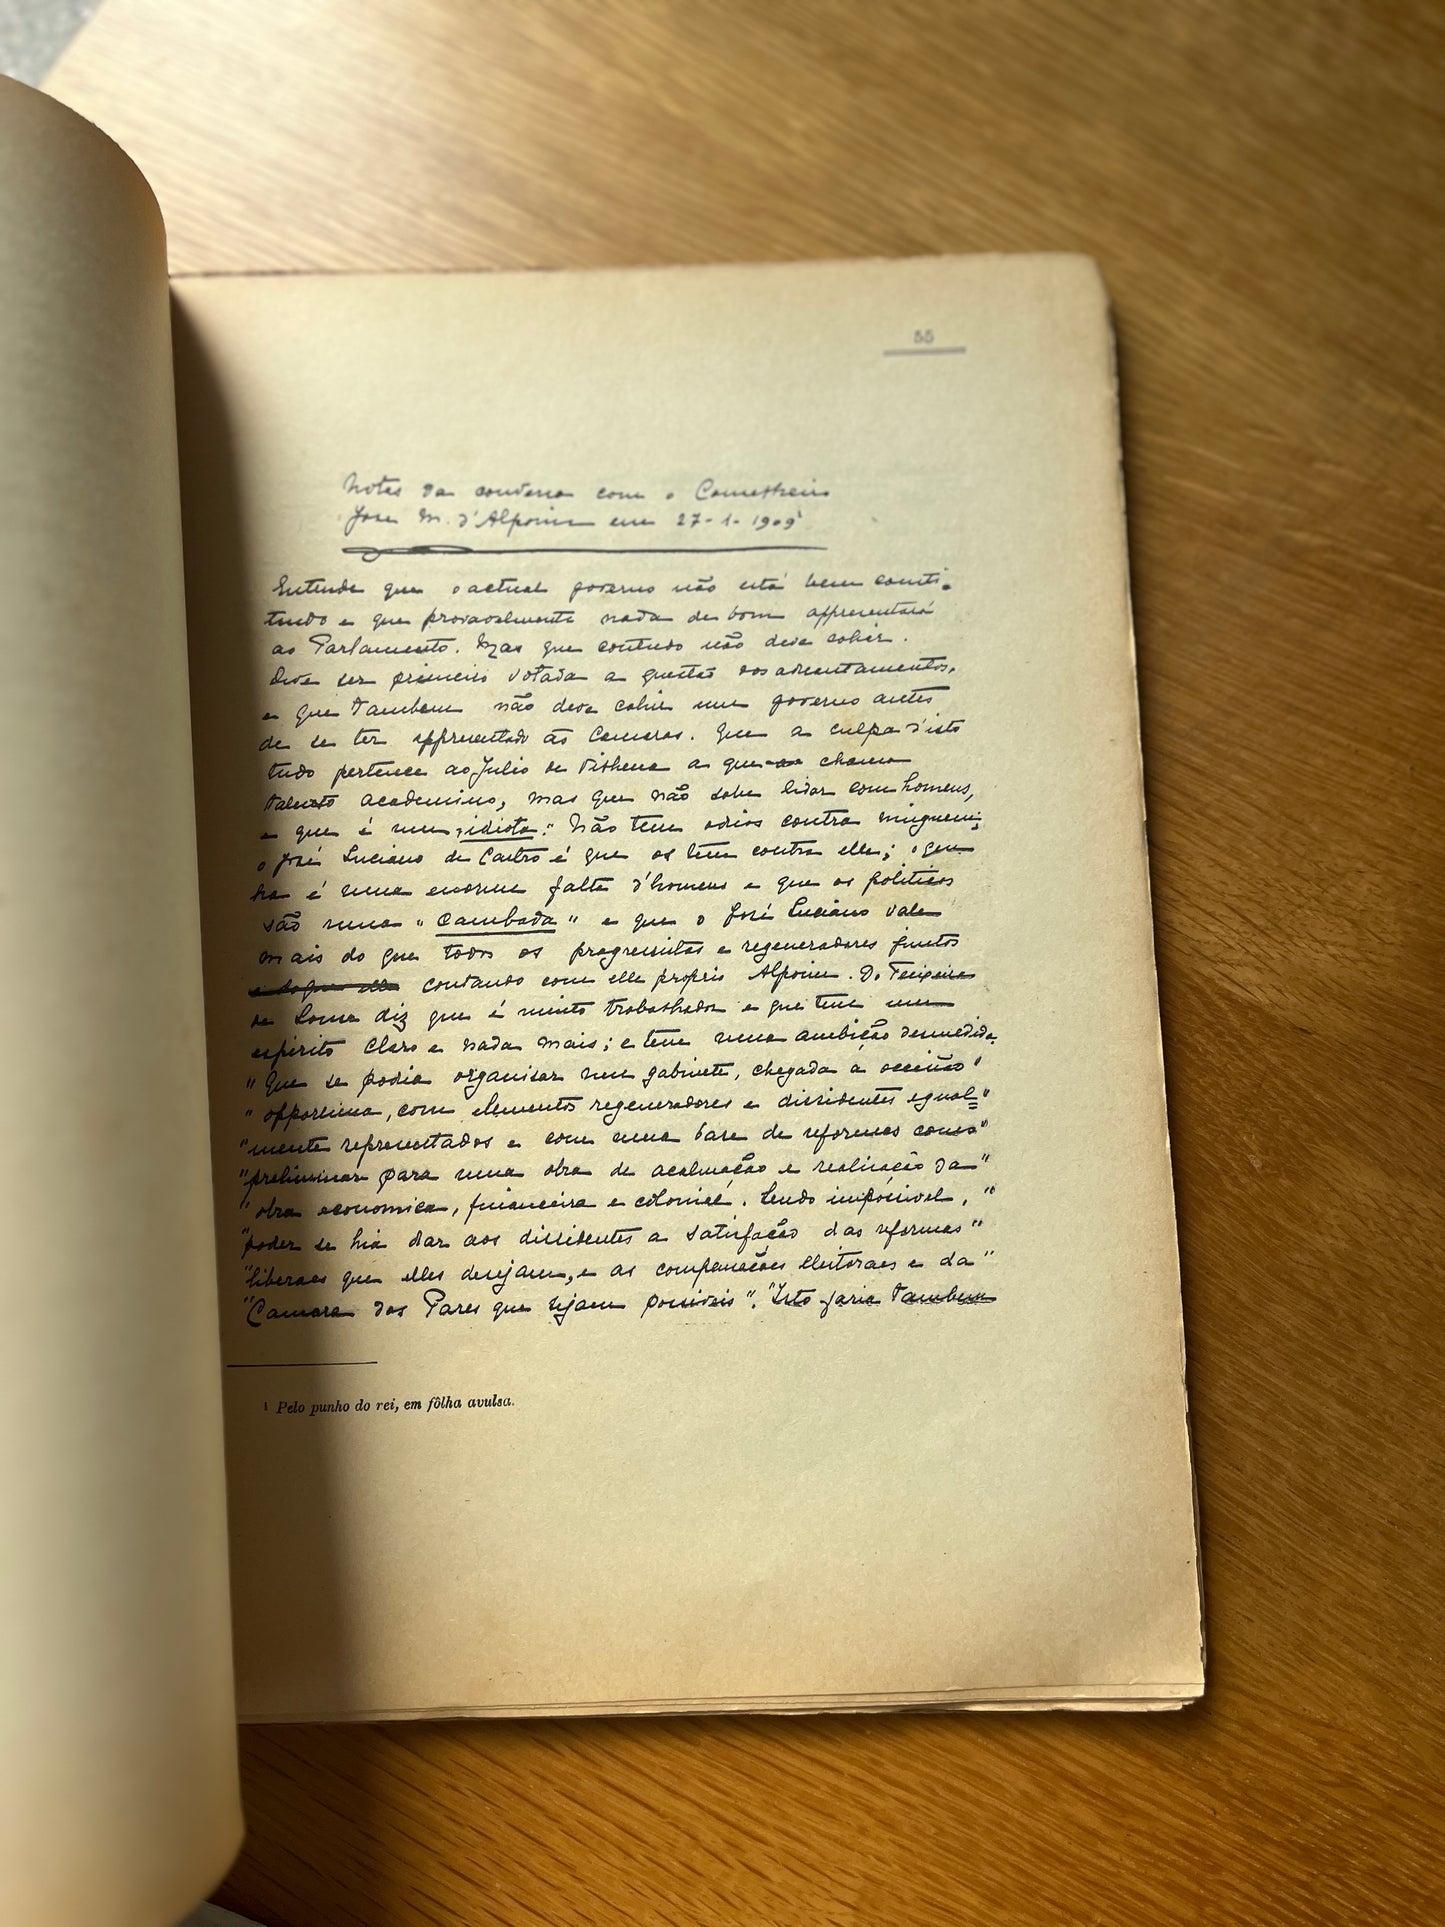 55
Notas da conversa com o Conselheiro
José M. d'Alpoim em 27-1-1909¹
Entende que o actual governo não está bem consti-
tuido e que provavelmente nada de bom appresentará
ao Parlamento. Mas que contudo não deve cahir.
Deve ser primeiro votada a questão dos adeantamentos,
e que tambem não deve cahir um governo antes
de se ter appresentado ás Camaras. Que a culpa d'isto
tudo pertence ao Julio de Vilhena a que chama
talento academico, mas que não sabe lidar com homens,
e que é um "idiota". Não tem odios contra ninguem;
o José Luciano de Castro é que os tem contra elle; o que
ha é uma enorme falta d'homens e que os politicos
são uma "Cambada" e que o José Luciano vale
mais do que todos os progressistas e regeneradores juntos
e do que elle contando com elle proprio Alpoim. Do Teixeira
de Sousa diz que é muito trabalhador e que tem um
espirito claro e nada mais; e tem uma ambição desmedida.
"Que se podia organisar um gabinete, chegada a occasião"
"opportuna, com elementos regeneradores e dissidentes egual="
"mente representados e com uma base de reformas como"
"preliminar para uma obra de acalmação e realisação da"
"obra economica, financeira e colonial. Sendo impossivel,"
"poder se hia dar aos dissidentes a satisfação das reformas"
"liberaes que elles desejam, e as compensações eleitoraes e da"
"Camara dos Pares que sejam possiveis". "Isto faria tambem
¹ Pelo punho do rei, em fôlha avulsa.